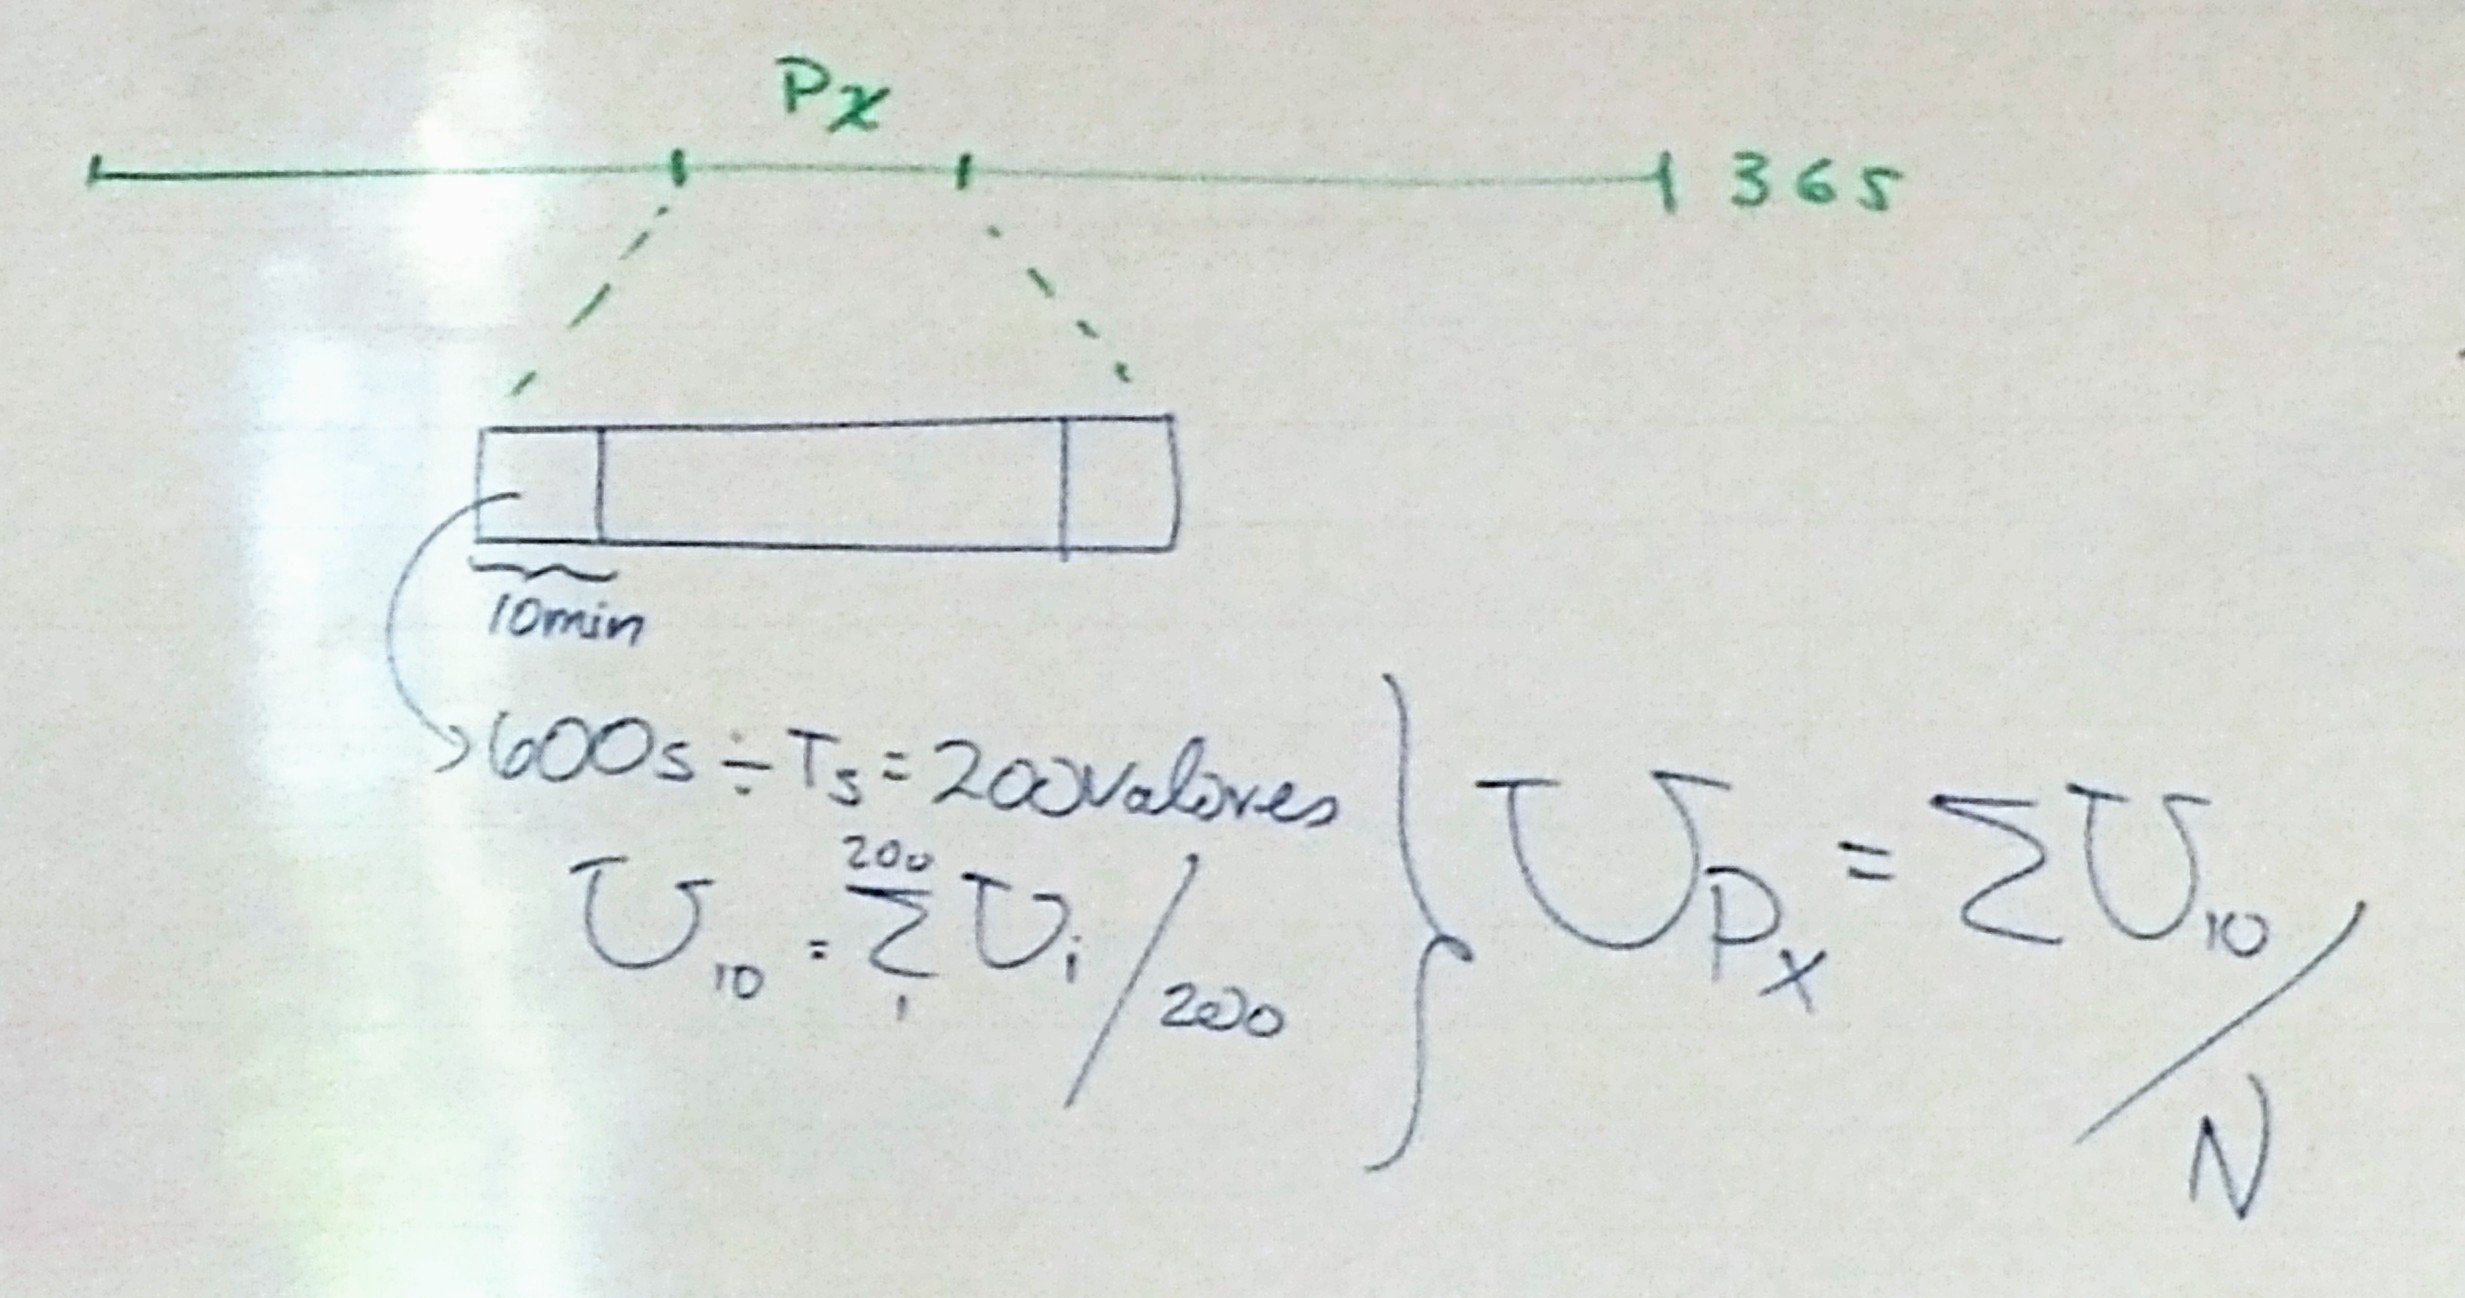 Px
365
10min
600s ÷ Ts = 200 valores
U10 = 200 Σ 1 Ui / 200
UPx = Σ U10 / N